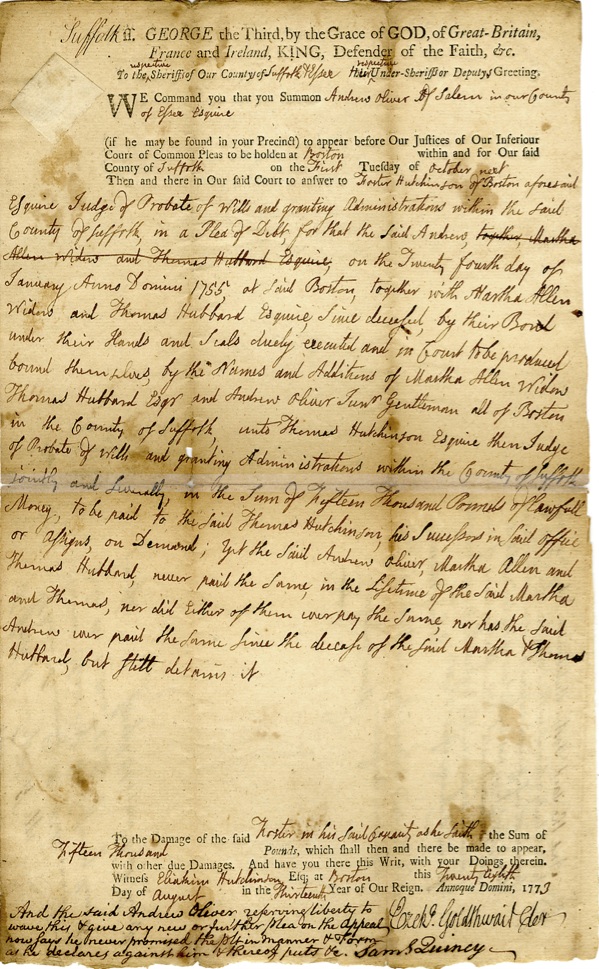 Suffolk ss. GEORGE the Third, by the Grace of GOD, of Great-Britain,
France and Ireland, KING, Defender of the Faith, &c.
To the respective Sheriffs of Our County of Suffolk & Essex their respective Under-Sheriff or Deputys Greeting.
WE Command you that you Summon Andrew Oliver of Salem in our County
of Essex Esquire
(if he may be found in your Precinct) to appear before Our Justices of Our Inferiour
Court of Common Pleas to be holden at Boston within and for Our said
County of Suffolk on the First Tuesday of October next
Then and there in Our said Court to answer to Foster Hutchinson of Boston aforesaid
Esquire Judge of Probate of Wills and granting Administrations within the Said
County of Suffolk, in a Plea of Debt for that the Said Andrew, together Martha
Allen Widow and Thomas Hubbard Esquire, on the Twenty fourth day of
January Anno Domini 1755 at Said Boston, together with Martha Allen
Widow and Thomas Hubbard Esquire, Since deceased, by their Bond
under their Hands and Seals duely executed and in Court to be produced
bound themselves, by the Names and Additions of Martha Allen Widow
Thomas Hubbard Esqr and Andrew Oliver Junr Gentleman all of Boston
in the County of Suffolk, unto Thomas Hutchinson Esquire then Judge
of Probate of Wills and granting Administrations within the County of Suffolk
jointly and Severally, in the Sum of Fifteen Thousand Pounds of lawfull
Money, to be paid to the Said Thomas Hutchinson, his Successors in Said Office
or Assigns, on Demand; Yet the Said Andrew Oliver, Martha Allen and
Thomas Hubbard, never paid the Same, in the Lifetime of the Said Martha
and Thomas, nor did Either of them ever pay the Same, nor has the Said
Andrew ever paid the Same Since the decease of the Said Martha & Thomas
Hubbard, but Still detains it
To the Damage of the said Foster in his Said Capacity as he Saith the Sum of
Fifteen Thousand Pounds, which shall then and there be made to appear,
with other due Damages. And have you there this Writ, with your Doings therein.
Witness Eliakim Hutchinson Esq; at Boston this Twenty Eighth
Day of August in the Thirteenth Year of Our Reign. Annoque Domini, 1773
And the said Andrew Oliver reserving liberty to
wave this, & give any new or further plea on the Appeal,
now says he never promised the plt in manner & form
as he declares against him & thereof puts &c. Saml Quincy
Ezekl. Goldthwait Cler